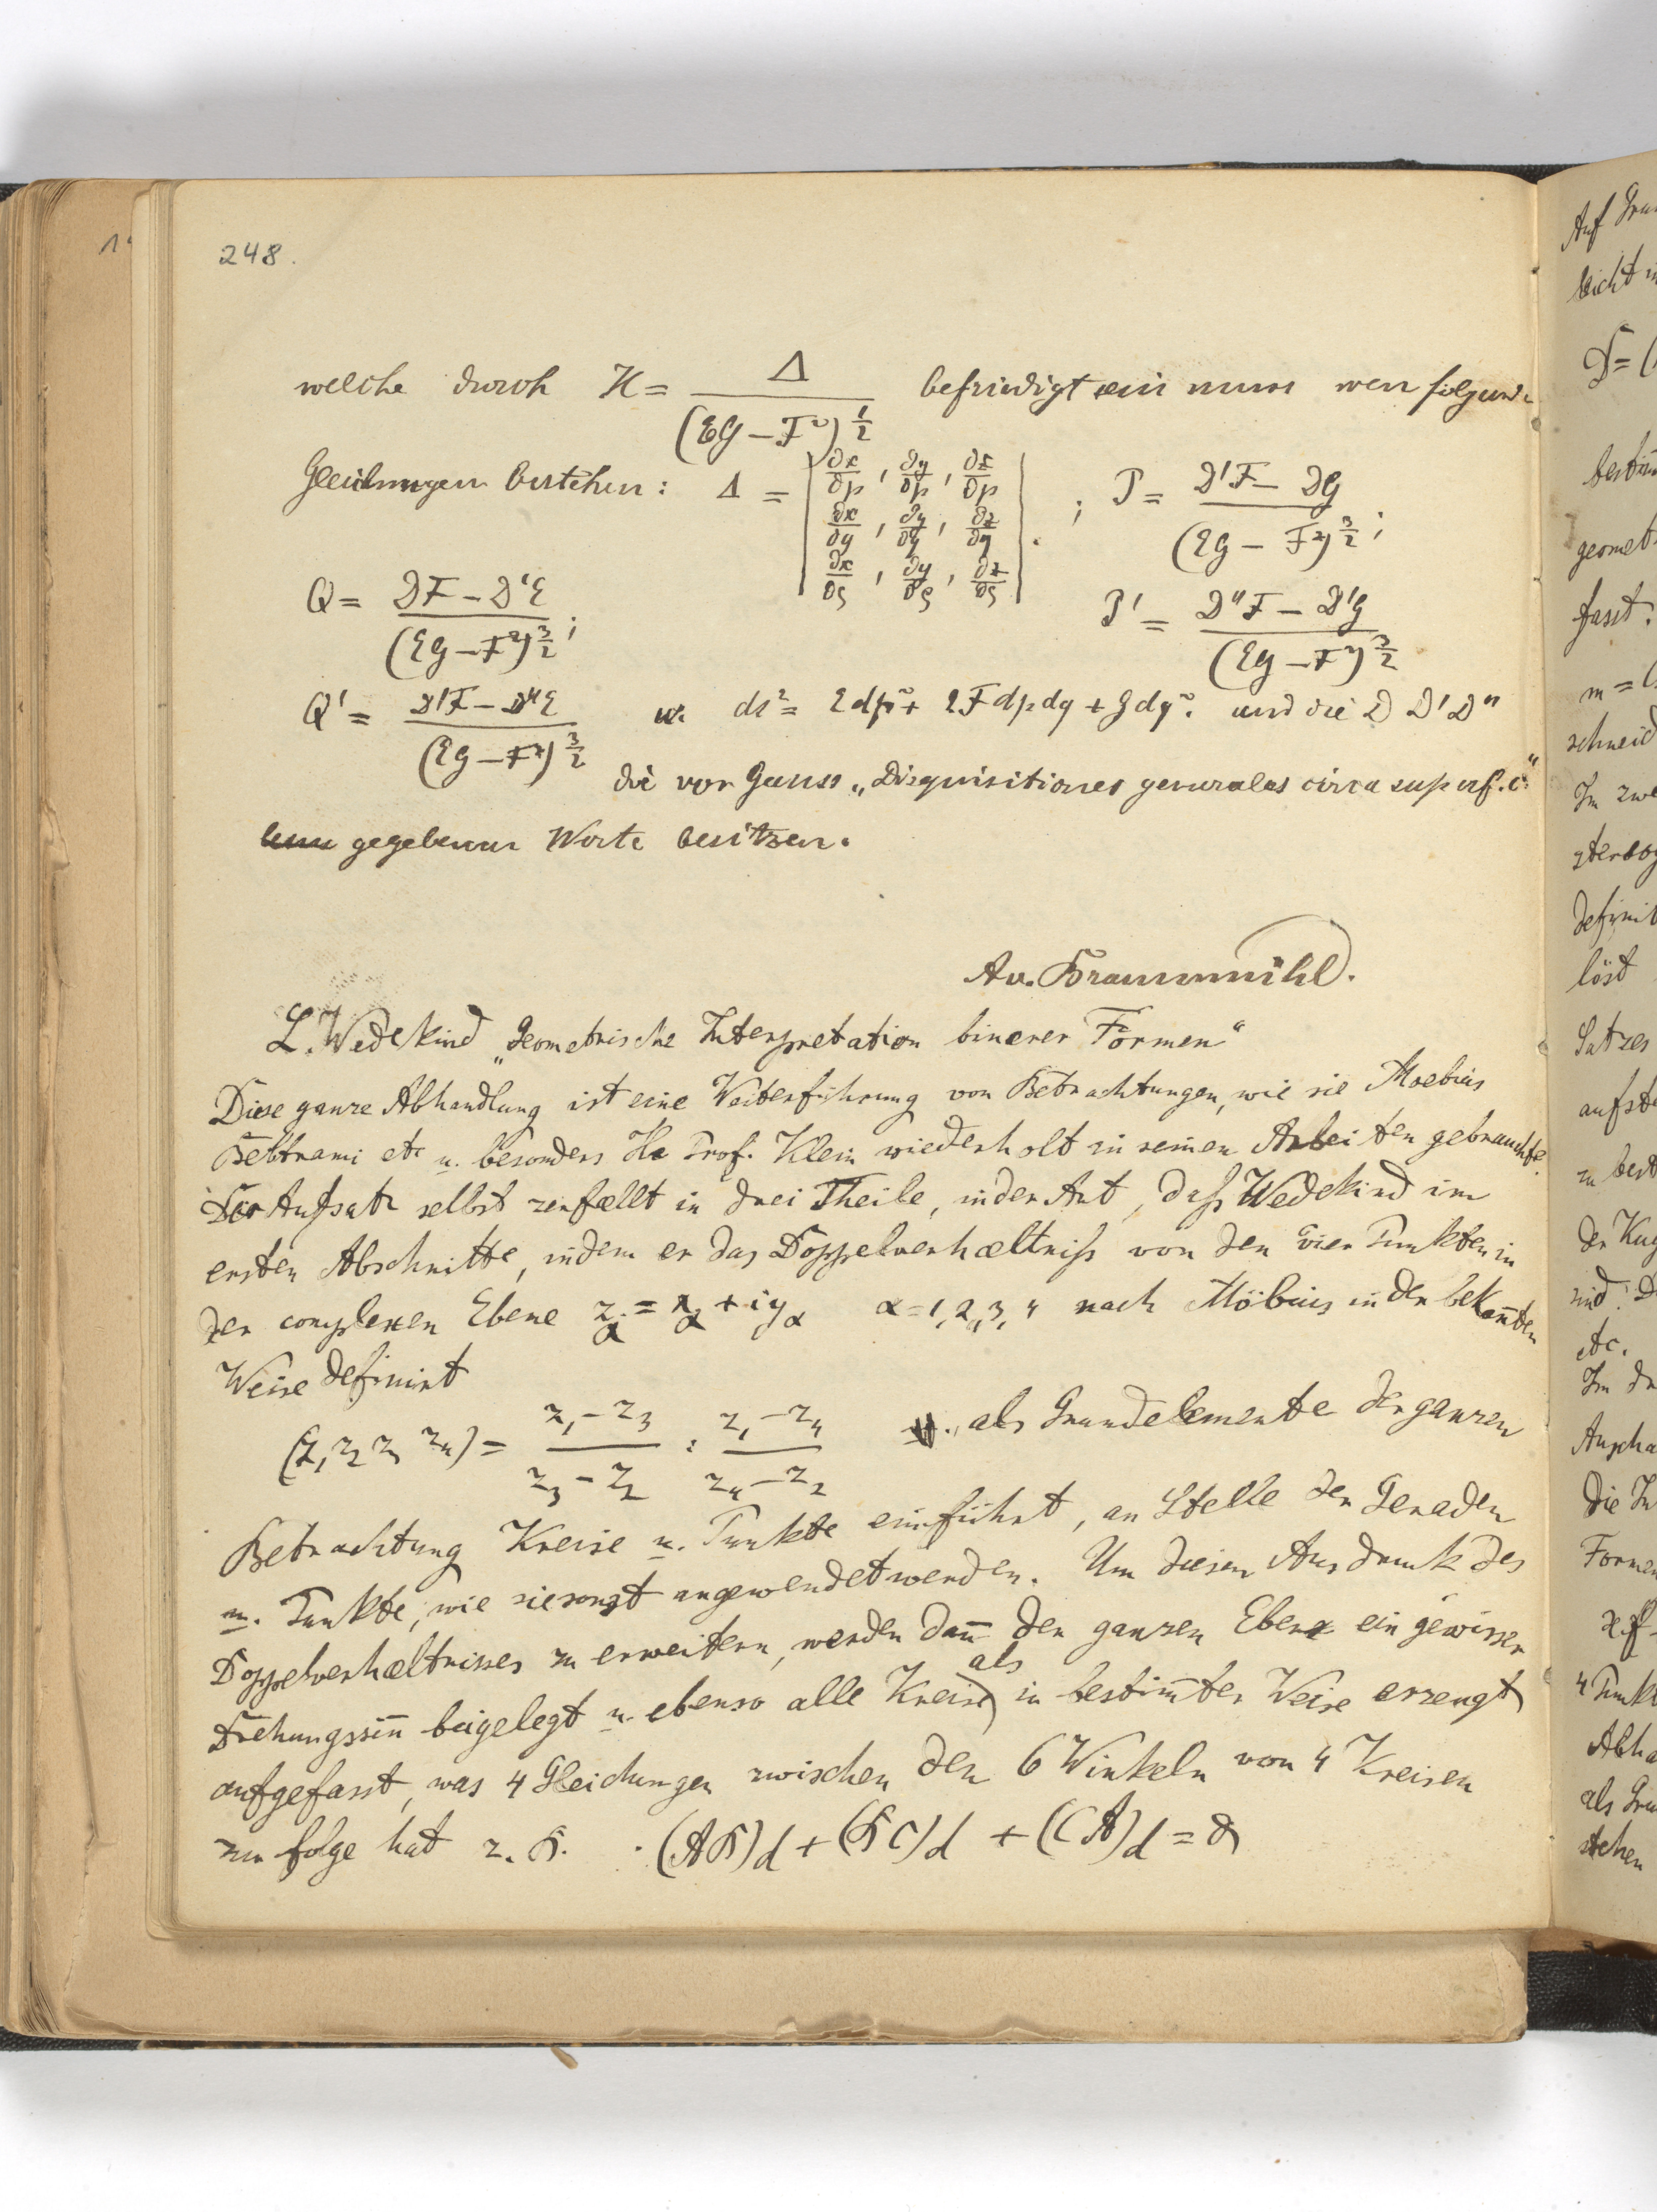 248.
welche durch H = Δ / (EG – F²)^½ befriedigt
Gleichungen bestehen: Δ = | ∂x/∂p , ∂y/∂p , ∂z/∂p ; ∂x/∂q , ∂y/∂q , ∂z/∂q ; ∂x/∂ς , ∂y/∂ς , ∂z/∂ς | . ; P = D'F – DG / (EG – F²)^3/2 ;
Q = DF – D'E / (EG – F²)^3/2 ; P' = D''F – D'G / (EG – F²)^3/2
Q' = D'F – D''E / (EG – F²)^3/2 u. ds² = Edp² + 2Fdpdq + Gdq². und die D D' D''
die von Gauss „Disquisitiones generales circa superf. c."
gegebenen Werte besitzen.
Av. Braunmühl.
L. Wedekind „Geometrische Interpretation binerer Formen"
Diese ganze Abhandlung ist eine Weiterführung von Betrachtungen, wie sie Moebius
Beltrami etc u. besonders H. Prof. Klein wiederholt in seinen Arbeiten gebrauchte.
Der Aufsatz selbst zerfællt in drei Theile, in der Art, daſs Wedekind im
ersten Abschnitte, indem er das Doppelverhæltniſs von den vier Punkten in
der complexen Ebene z_α = x_α + iy_α α = 1, 2, 3, 4 nach Möbius in der bekañten
Weise definirt
(z₁ z₂ z₃ z₄) = z₁ – z₃ / z₃ – z₂ : z₁ – z₄ / z₄ – z₂ u. als Grundelemente der ganzen
Betrachtung Kreise u. Punkte einführt, an Stelle der Geraden
u. Punkte, wie sie sonst angewendet werden. Um diesen Ausdruck des
Doppelverhæltnisses zu erweitern, werden dañ der ganzen Ebene ein gewisser
Drehungssiñ beigelegt u. ebenso alle Kreise als in bestim̄ter Weise erzeugt
aufgefasst, was 4 Gleichungen zwischen den 6 Winkeln von 4 Kreisen
zur folge hat z. B. (AB)d + (BC)d + (CA)d =
Auf
leicht
bestim
geomet
fasst:
m =
schneid
Im zwe
definit
löst
Satzes
aufst
zu best
der Kug
sind. D
etc.
Im dr
Anscha
die In
Formen
4 Punkt
Abha
als Gru
stehen